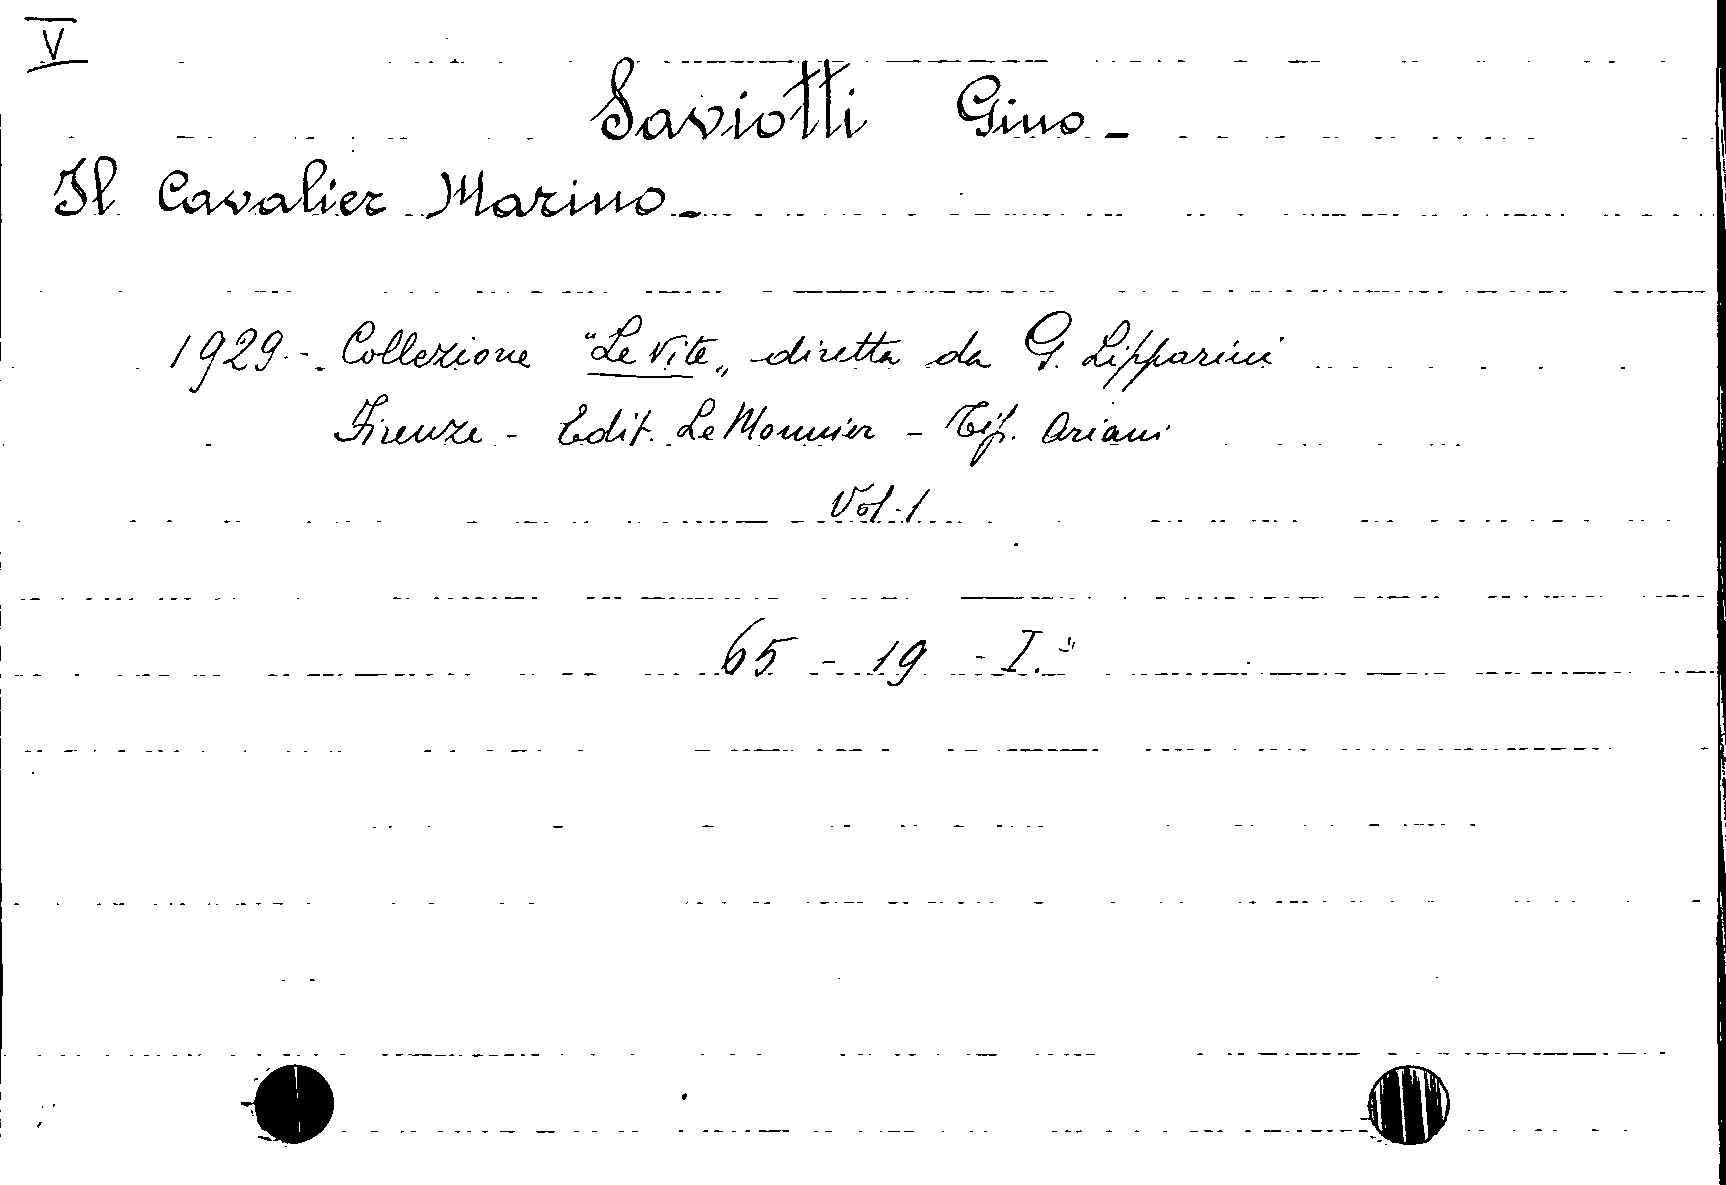 V
Saviotti Gino -
Il Cavalier Marino -
1929 - Collezione "Le Vite„ diretta da G. Lipparini
Firenze - Edit. Le Monnier - Tip. Ariani
Vol. 1
65 - 19 - I.